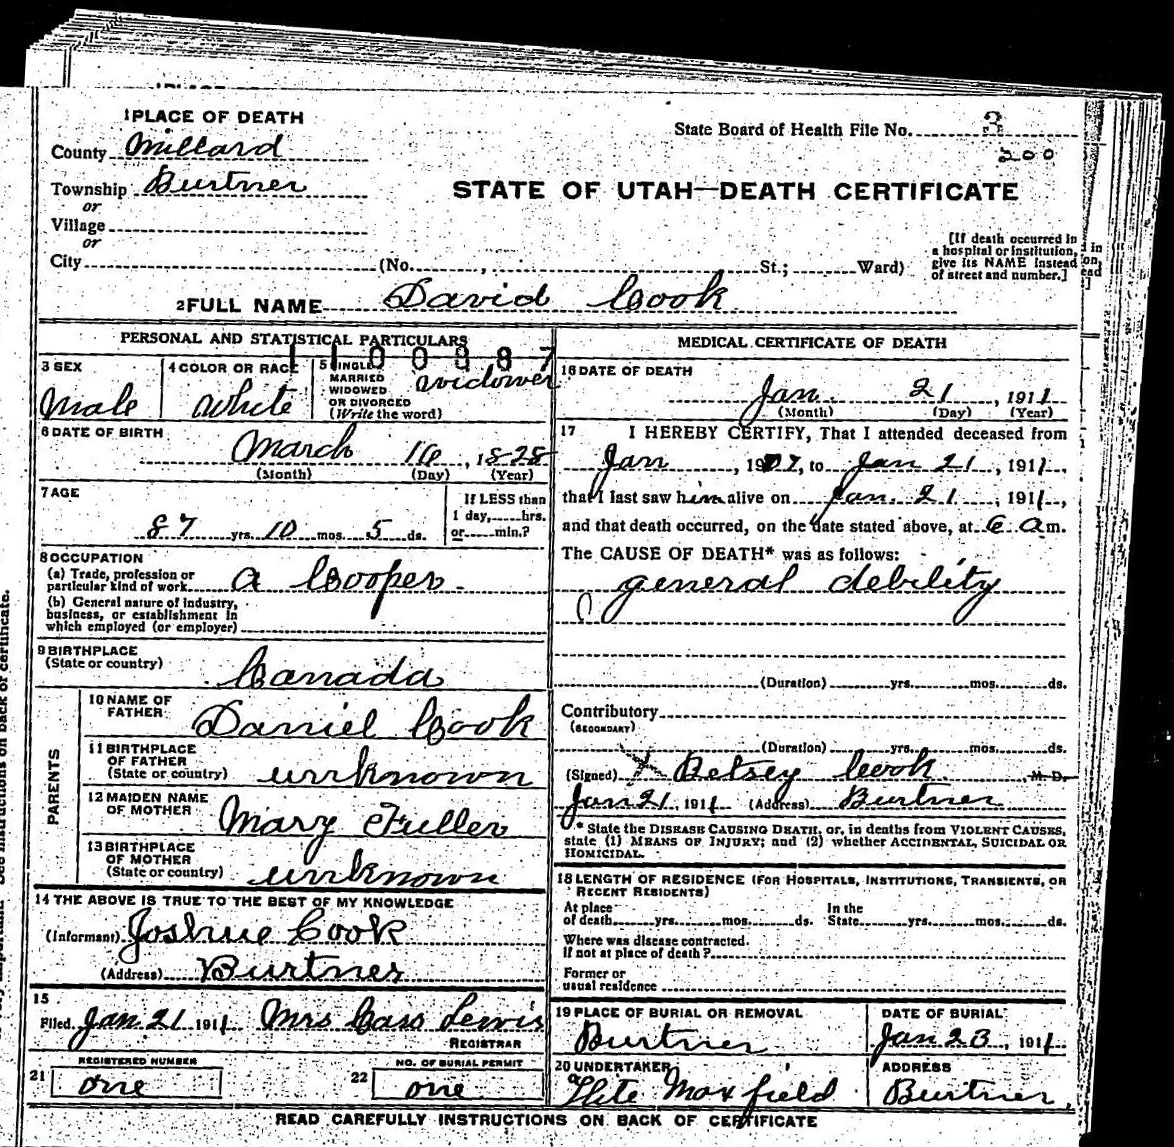 1 PLACE OF DEATH
County Millard
Township Burtner
or
Village
or
City (No. , St.; Ward)
State Board of Health File No. 3
200
STATE OF UTAH—DEATH CERTIFICATE
[If death occurred in
a hospital or institution,
give its NAME instead
of street and number.]
2 FULL NAME David Cook
PERSONAL AND STATISTICAL PARTICULARS
1100087
3 SEX
Male
4 COLOR OR RACE
White
5 SINGLE
MARRIED
WIDOWED
OR DIVORCED
(Write the word)
Widower
6 DATE OF BIRTH
March 16, 1828
(Month) (Day) (Year)
7 AGE
87 yrs. 10 mos. 5 ds.
If LESS than
1 day, hrs.
or min.?
8 OCCUPATION
(a) Trade, profession or
particular kind of work a Cooper
(b) General nature of industry,
business, or establishment in
which employed (or employer)
9 BIRTHPLACE
(State or country)
Canada
PARENTS
10 NAME OF
FATHER
Daniel Cook
11 BIRTHPLACE
OF FATHER
(State or country) unknown
12 MAIDEN NAME
OF MOTHER
Mary Fuller
13 BIRTHPLACE
OF MOTHER
(State or country) unknown
14 THE ABOVE IS TRUE TO THE BEST OF MY KNOWLEDGE
(Informant) Joshue Cook
(Address) Burtner
15
Filed Jan 21 1911 Mrs Cass Lewis
REGISTRAR
REGISTERED NUMBER
21 one
NO. OF BURIAL PERMIT
22 one
MEDICAL CERTIFICATE OF DEATH
16 DATE OF DEATH
Jan. 21, 1911
(Month) (Day) (Year)
17 I HEREBY CERTIFY, That I attended deceased from
Jan , 1907, to Jan 21, 1911,
that I last saw him alive on Jan. 21, 1911,
and that death occurred, on the date stated above, at 6 a m.
The CAUSE OF DEATH* was as follows:
general debility
(Duration) yrs. mos. ds.
Contributory
(SECONDARY)
(Duration) yrs. mos. ds.
(Signed) X Betsey Cook M. D.
Jan 21, 1911 (Address) Burtner
* State the DISEASE CAUSING DEATH, or, in deaths from VIOLENT CAUSES,
state (1) MEANS OF INJURY; and (2) whether ACCIDENTAL, SUICIDAL OR
HOMICIDAL.
18 LENGTH OF RESIDENCE (FOR HOSPITALS, INSTITUTIONS, TRANSIENTS, OR
RECENT RESIDENTS)
At place In the
of death yrs. mos. ds. State yrs. mos. ds.
Where was disease contracted.
If not at place of death?
Former or
usual residence
19 PLACE OF BURIAL OR REMOVAL
Burtner
DATE OF BURIAL
Jan 23, 1911
20 UNDERTAKER
Maxfield
ADDRESS
Burtner
READ CAREFULLY INSTRUCTIONS ON BACK OF CERTIFICATE